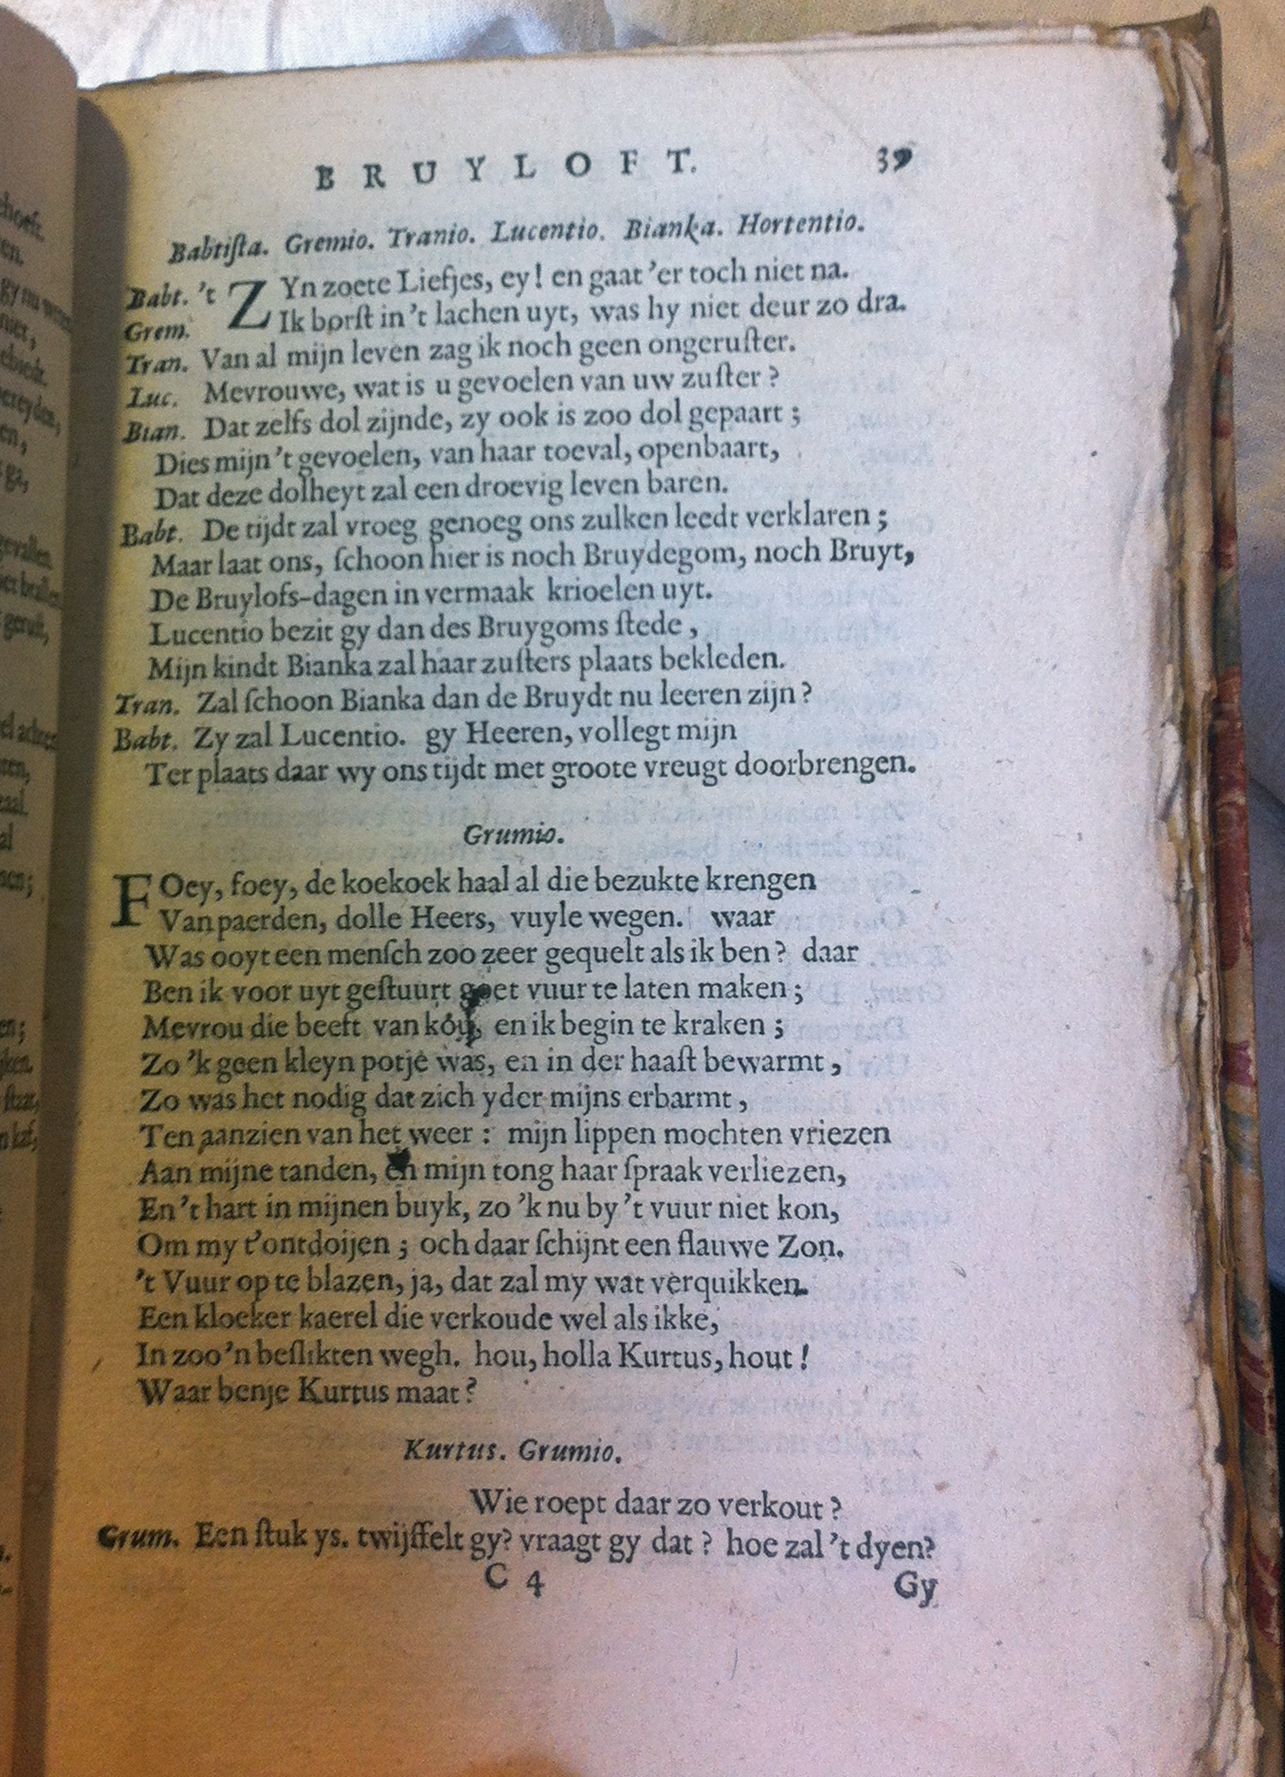 BRUYLOFT. 39
Babtiſta. Gremio. Tranio. Lucentio. Bianka. Hortentio.
Babt. 't ZYn zoete Liefjes, ey! en gaat 'er toch niet na.
Grem. Ik borſt in 't lachen uyt, was hy niet deur zo dra.
Tran. Van al mijn leven zag ik noch geen ongeruſter.
Luc. Mevrouwe, wat is u gevoelen van uw zuſter?
Bian. Dat zelfs dol zijnde, zy ook is zoo dol gepaart;
Dies mijn 't gevoelen, van haar toeval, openbaart,
Dat deze dolheyt zal een droevig leven baren.
Babt. De tijdt zal vroeg genoeg ons zulken leedt verklaren;
Maar laat ons, ſchoon hier is noch Bruydegom, noch Bruyt,
De Bruylofs-dagen in vermaak krioelen uyt.
Lucentio bezit gy dan des Bruygoms ſtede,
Mijn kindt Bianka zal haar zuſters plaats bekleden.
Tran. Zal ſchoon Bianka dan de Bruydt nu leeren zijn?
Babt. Zy zal Lucentio. gy Heeren, vollegt mijn
Ter plaats daar wy ons tijdt met groote vreugt doorbrengen.
Grumio.
FOey, foey, de koekoek haal al die bezukte krengen
Van paerden, dolle Heers, vuyle wegen. waar
Was ooyt een menſch zoo zeer gequelt als ik ben? daar
Ben ik voor uyt geſtuurt goet vuur te laten maken;
Mevrou die beeft van kóu, en ik begin te kraken;
Zo 'k geen kleyn potje was, en in der haaſt bewarmt,
Zo was het nodig dat zich yder mijns erbarmt,
Ten aanzien van het weer: mijn lippen mochten vriezen
Aan mijne tanden, en mijn tong haar ſpraak verliezen,
En 't hart in mijnen buyk, zo 'k nu by 't vuur niet kon,
Om my t'ontdoijen; och daar ſchijnt een flauwe Zon.
't Vuur op te blazen, ja, dat zal my wat verquikken.
Een kloeker kaerel die verkoude wel als ikke,
In zoo'n beſlikten wegh. hou, holla Kurtus, hout!
Waar benje Kurtus maat?
Kurtus. Grumio.
Wie roept daar zo verkout?
Grum. Een ſtuk ys. twijffelt gy? vraagt gy dat? hoe zal 't dyen?
C 4 Gy